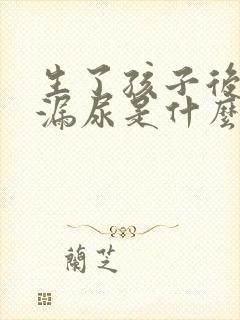 生了孩子後
漏尿是什麼
蘭芝